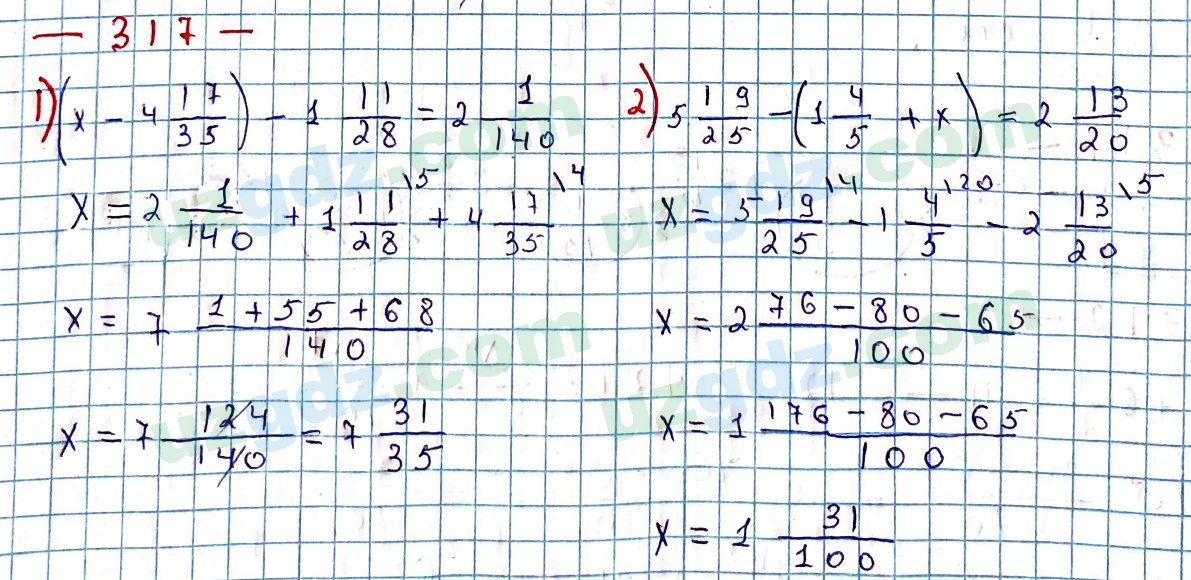 — 317 —
1) (x - 4 17/35) - 1 11/28 = 2 1/140
x = 2 1/140 + 1 11/28 \5 + 4 17/35 \4
x = 7 (1 + 55 + 68)/140
x = 7 124/140 = 7 31/35
2) 5 19/25 - (1 4/5 + x) = 2 13/20
x = 5 19/25 \4 - 1 4/5 \20 - 2 13/20 \5
x = 2 (76 - 80 - 65)/100
x = 1 (176 - 80 - 65)/100
x = 1 31/100
uzgdz.com
uzgdz.com
uzgdz.com
uzgdz.com